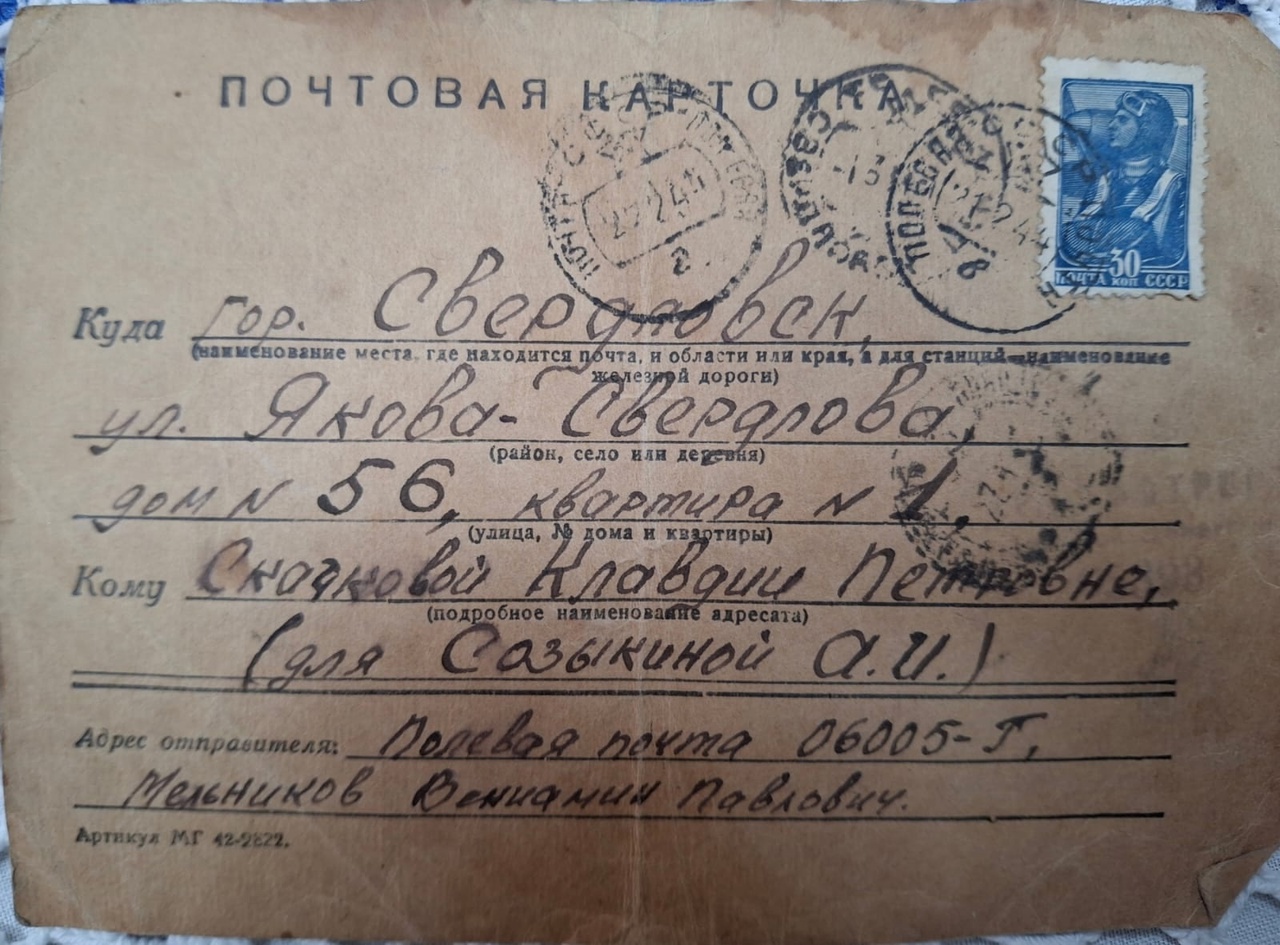 ПОЧТОВАЯ КАРТОЧКА
27 2 44
2
30
ПОЧТА КОП СССР
Куда гор. Свердловск,
(наименование места, где находится почта, и области или края, а для станций—наименование
железной дороги)
ул. Якова-Свердлова,
(район, село или деревня)
дом N 56, квартира N 1,
(улица, № дома и квартиры)
Кому Скачковой Клавдии Петровне,
(подробное наименование адресата)
(для Созыкиной А.И.)
Адрес отправителя: Полевая почта 06005-Г,
Мельников Вениамин Павлович.
Артикул МГ 42-2822.